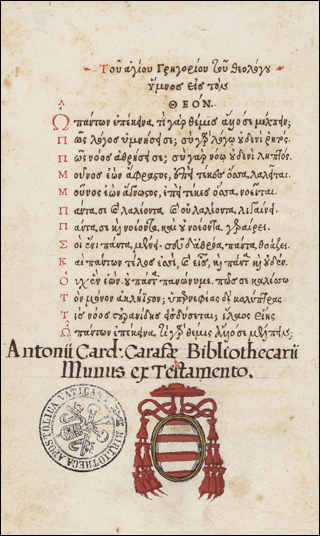 Τοῦ ἁγίου Γρηγορίου τοῦ θεολόγου
ὕμνος εἰς τὸν
ΘΕΟΝ.
Ὦ πάντων ἐπέκεινα, τί γὰρ θέμις ἄλλο σε μέλπειν;
Πῶς λόγος ὑμνήσει σε; σὺ γὰρ λόγῳ οὐδενὶ ῥητός.
Πῶς νόος ἀθρήσει σε; σὺ γὰρ νόῳ οὐδενὶ ληπτός.
Μοῦνος ἐὼν ἄφραστος, ἐπεὶ τέκες ὅσα λαλεῖται.
Μοῦνος ἐὼν ἄγνωστος, ἐπεὶ τέκες ὅσα νοεῖται.
Πάντα σε καὶ λαλέοντα, καὶ οὐ λαλέοντα, λιγαίνει.
Πάντα σε καὶ νοέοντα, καὶ οὐ νοέοντα, γεραίρει.
Σοὶ ἑνὶ πάντα μένει. σοὶ δ' ἀθρόα πάντα θοάζει.
Καὶ πάντων τέλος ἐσσί, καὶ εἷς, καὶ πάντα καὶ οὐδέν.
Οὐχ ἓν ἐὼν. οὐ πάντα. πανώνυμε. πῶς σε καλέσω
Τὸν μόνον ἀκλήϊστον; ὑπερνεφέας δὲ καλύπτρας
Τίς νόος οὐρανίδης εἰσδύσεται; ἵλαος εἴης
Ὦ πάντων ἐπέκεινα, τί γὰρ θέμις ἄλλο σε μέλπειν;
Antonii Card: Carafæ Bibliothecarii
Munus ex Testamento.
BIBLIOTHECA APOSTOLICA VATICANA